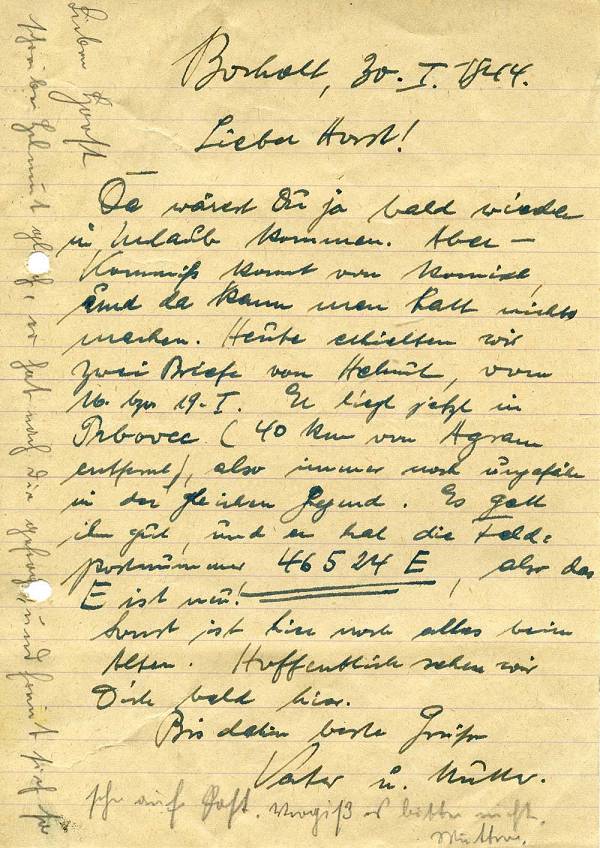 Bocholt, 30. I. 1944.
Lieber Horst!
Da wärest Du ja bald wieder
in Urlaub kommen. Aber –
Kommiß kommt von komisch,
und da kann man halt nichts
machen. Heute erhielten wir
zwei Briefe von Helmut, vom
16. bzw 19. I. Er liegt jetzt in
Trbovec (40 km von Agram
entfernt), also immer noch ungefähr
in der gleichen Gegend. Es geht
ihm gut, und er hat die Feld=
postnummer 46524 E, also das
E ist neu!
Sonst ist hier noch alles beim
Alten. Hoffentlich sehen wir
Dich bald hier.
Bis dahin beste Grüße
Vater u. Mutter.
Lieber Horst
schreibe Helmut , er hat nach Dir gefragt und freut sich so
sehr auf Post. Vergiß es bitte nicht.
Mutter.